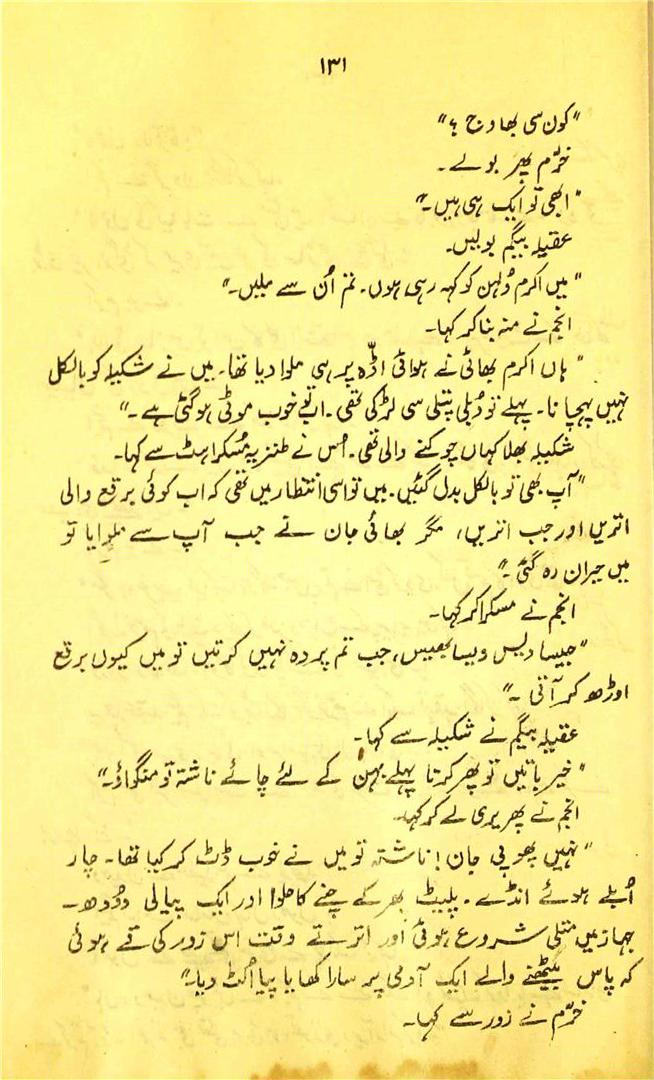 ۱۳۱
"کون سی بھاوج؟"
خرّم پھر بولے۔
"ابھی تو ایک ہی ہیں۔"
عقیلہ بیگم بولیں۔
"میں اکرم دُلہن کو کہہ رہی ہوں۔ تم اُن سے ملیں۔"
انجم نے منہ بنا کر کہا۔
"ہاں اکرم بھائی نے ہوائی اڈّہ پر ہی ملوا دیا تھا۔ میں نے شکیلہ کو بالکل
نہیں پہچانا۔ پہلے تو دُبلی پتلی سی لڑکی تھی۔ اب تو خوب موٹی ہو گئی ہے۔"
شکیلہ بھلا کہاں چوکنے والی تھی۔ اُس نے طنزیہ مُسکراہٹ سے کہا۔
"آپ بھی تو بالکل بدل گئیں۔ میں تو اسی انتظار میں تھی کہ اب کوئی برقع والی
اتریں اور جب اتریں، مگر بھائی جان نے جب آپ سے ملوایا تو
میں حیران رہ گئی۔"
انجم نے مسکرا کر کہا۔
"جیسا دیس ویسا بھیس، جب تم پردہ نہیں کرتیں تو میں کیوں برقع
اوڑھ کر آتی۔"
عقیلہ بیگم نے شکیلہ سے کہا۔
"خیر باتیں تو پھر کرنا پہلے بہن کے لئے چائے ناشتہ تو منگواؤ۔"
انجم نے پھریری لے کر کہا۔
"نہیں پھوپی جان! ناشتہ تو میں نے خوب ڈٹ کر کیا تھا۔ چار
اُبلے ہوئے انڈے۔ پلیٹ بھر کے چنے کا حلوا اور ایک پیالی دُودھ۔
جہاز میں متلی شروع ہوئی اور اترتے وقت اس زور کی قے ہوئی
کہ پاس بیٹھنے والے ایک آدمی پر سارا کھایا پیا اُلٹ دیا۔"
خرّم نے زور سے کہا۔